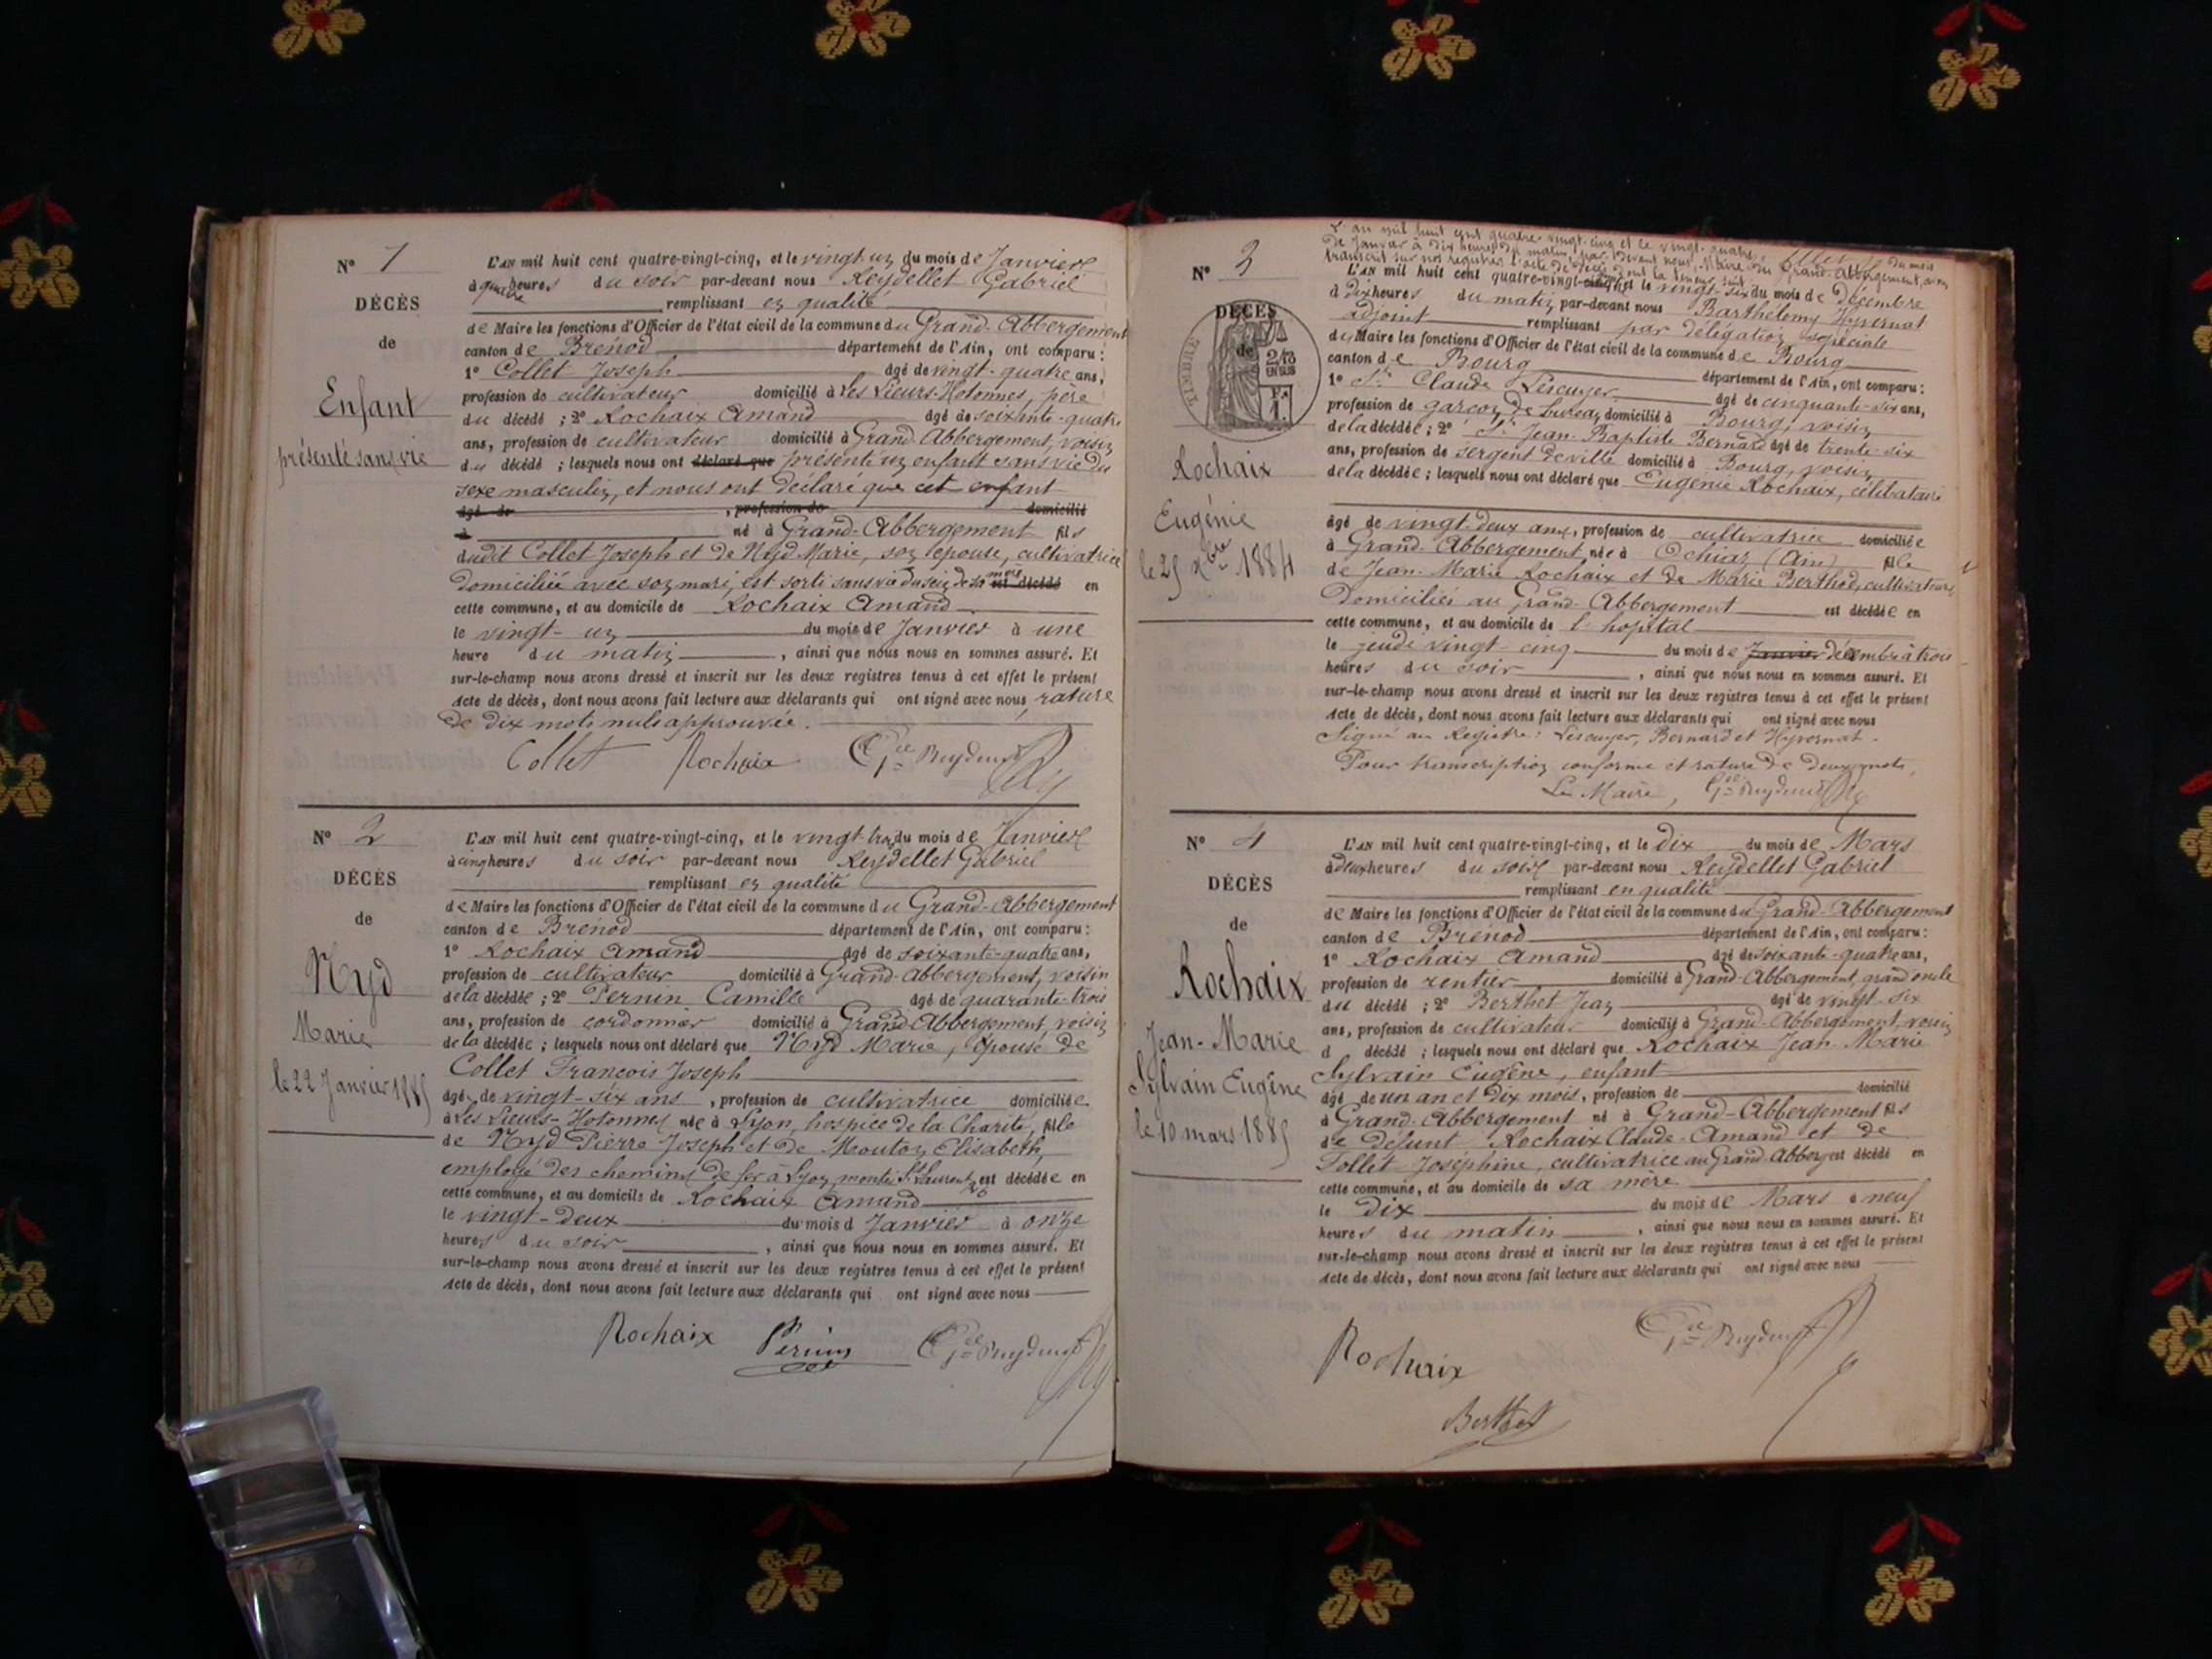 N° 1
DÉCÈS
de
Enfant
présenté sans vie
L'AN mil huit cent quatre-vingt-cinq, et le vingt-un du mois de Janvier
à quatre heures du soir par-devant nous Reydellet Gabriel
remplissant en qualité
de Maire les fonctions d'Officier de l'état civil de la commune du Grand-Abbergement
canton de Brénod département de l'Ain, ont comparu :
1° Collet Joseph âgé de vingt-quatre ans,
profession de cultivateur domicilié à Les Lieurs-Hotonnes, père
du décédé ; 2° Rochaix Amand âgé de soixante-quatre
ans, profession de cultivateur domicilié à Grand-Abbergement, voisin
du décédé ; lesquels nous ont déclaré que présenté un enfant sans vie du
sexe masculin, et nous ont déclaré que cet enfant
âgé de , profession de domicilié
à né à Grand-Abbergement fils
dudit Collet Joseph et de Nyd Marie, son épouse, cultivatrice
domiciliée avec son mari, est sorti sans vie du sein de sa mère est décédé en
cette commune, et au domicile de Rochaix Amand
le vingt-un du mois de Janvier à une
heure du matin , ainsi que nous nous en sommes assuré. Et
sur-le-champ nous avons dressé et inscrit sur les deux registres tenus à cet effet le présent
Acte de décès, dont nous avons fait lecture aux déclarants qui ont signé avec nous, rature
de dix mots nuls approuvée.
Collet Rochaix
N° 2
DÉCÈS
de
Nyd
Marie
le 22 Janvier 1885
L'AN mil huit cent quatre-vingt-cinq, et le vingt-trois du mois de Janvier
à cinq heures du soir par-devant nous Reydellet Gabriel
remplissant en qualité
de Maire les fonctions d'Officier de l'état civil de la commune du Grand-Abbergement
canton de Brénod département de l'Ain, ont comparu :
1° Rochaix Amand âgé de soixante-quatre ans,
profession de cultivateur domicilié à Grand-Abbergement, voisin
de la décédée ; 2° Pernin Camille âgé de quarante-trois
ans, profession de cordonnier domicilié à Grand-Abbergement, voisin
de la décédée ; lesquels nous ont déclaré que Nyd Marie, épouse de
Collet François Joseph
âgée de vingt-six ans , profession de cultivatrice domiciliée
à Les Lieurs-Hotonnes née à Lyon, hospice de la Charité, fille
de Nyd Pierre Joseph et de Mouton Elisabeth,
employé des chemins de fer à Lyon, montée St Laurent, est décédée en
cette commune, et au domicile de Rochaix Amand
le vingt-deux du mois d Janvier à onze
heures du soir , ainsi que nous nous en sommes assuré. Et
sur-le-champ nous avons dressé et inscrit sur les deux registres tenus à cet effet le présent
Acte de décès, dont nous avons fait lecture aux déclarants qui ont signé avec nous
Rochaix Pernin
N° 3
DÉCÈS
de
TIMBRE
Rochaix
Eugénie
le 25 Xbre 1884
L'an mil huit cent quatre-vingt-cinq et le vingt-quatre du mois
de Janvier à dix heures du matin, par devant nous, Maire du Grand-Abbergement, avons
transcrit sur nos registres l'acte de décès dont la teneur suit
L'AN mil huit cent quatre-vingt- et le vingt-six du mois de Décembre
à dix heures du matin, par-devant nous Barthélemy Hyvernat
adjoint remplissant par délégation spéciale
du Maire les fonctions d'Officier de l'état civil de la commune de Bourg
canton de Bourg département de l'Ain, ont comparu :
1° Sr Claude Lescuyer âgé de cinquante-six ans,
profession de garçon de bureau domicilié à Bourg, voisin
de la décédée ; 2° Sr Jean-Baptiste Bernard âgé de trente-six
ans, profession de sergent de ville domicilié à Bourg, voisin
de la décédée ; lesquels nous ont déclaré que Eugénie Rochaix, célibataire
âgé de vingt-deux ans, profession de cultivatrice domiciliée
à Grand-Abbergement née à Ochiaz (Ain) fille
de Jean-Marie Rochaix et de Marie Berthod, cultivateurs
domiciliés au Grand-Abbergement est décédée en
cette commune, et au domicile de l'hopital
le jeudi vingt-cinq du mois de Janvier décembre à trois
heures du soir , ainsi que nous nous en sommes assuré. Et
sur-le-champ nous avons dressé et inscrit sur les deux registres tenus à cet effet le présent
Acte de décès, dont nous avons fait lecture aux déclarants qui ont signé avec nous
Signé au Registre : Lescuyer, Bernard et Hyvernat.
Pour transcription conforme et rature de deux mots,
Le Maire,
N° 4
DÉCÈS
de
Rochaix
Jean-Marie
Sylvain Eugène
le 10 mars 1885
L'AN mil huit cent quatre-vingt-cinq, et le dix du mois de Mars
à deux heures du soir par-devant nous Reydellet Gabriel
remplissant en qualité
de Maire les fonctions d'Officier de l'état civil de la commune du Grand-Abbergement
canton de Brénod département de l'Ain, ont comparu :
1° Rochaix Amand âgé de soixante-quatre ans,
profession de rentier domicilié à Grand-Abbergement, grand oncle
du décédé ; 2° Berthet Jean âgé de vingt-six
ans, profession de cultivateur domicilié à Grand-Abbergement, voisin
d décédé ; lesquels nous ont déclaré que Rochaix Jean-Marie
Sylvain Eugène, enfant
âgé de un an et dix mois, profession de domicilié
à Grand-Abbergement né à Grand-Abbergement fils
de défunt Rochaix Claude-Amand et de
Tollet Joséphine, cultivatrice au Grand-Abberg est décédé en
cette commune, et au domicile de sa mère
le dix du mois de Mars à neuf
heures du matin , ainsi que nous nous en sommes assuré. Et
sur-le-champ nous avons dressé et inscrit sur les deux registres tenus à cet effet le présent
Acte de décès, dont nous avons fait lecture aux déclarants qui ont signé avec nous
Rochaix
Berthet